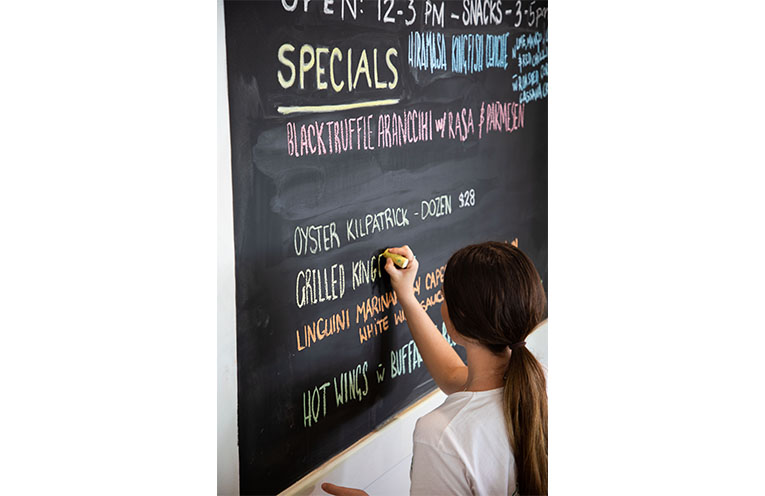 OPEN: 12-3 PM - SNACKS - 3-5pm
SPECIALS
HIRAMASA KINGFISH CEVICHE
BLACK TRUFFLE ARANCCIHI w/ RASA & PARMESEN
OYSTER KILPATRICK - DOZEN $28
GRILLED KING
LINGUINI MARINARA
WHITE
HOT WINGS w BUFFA